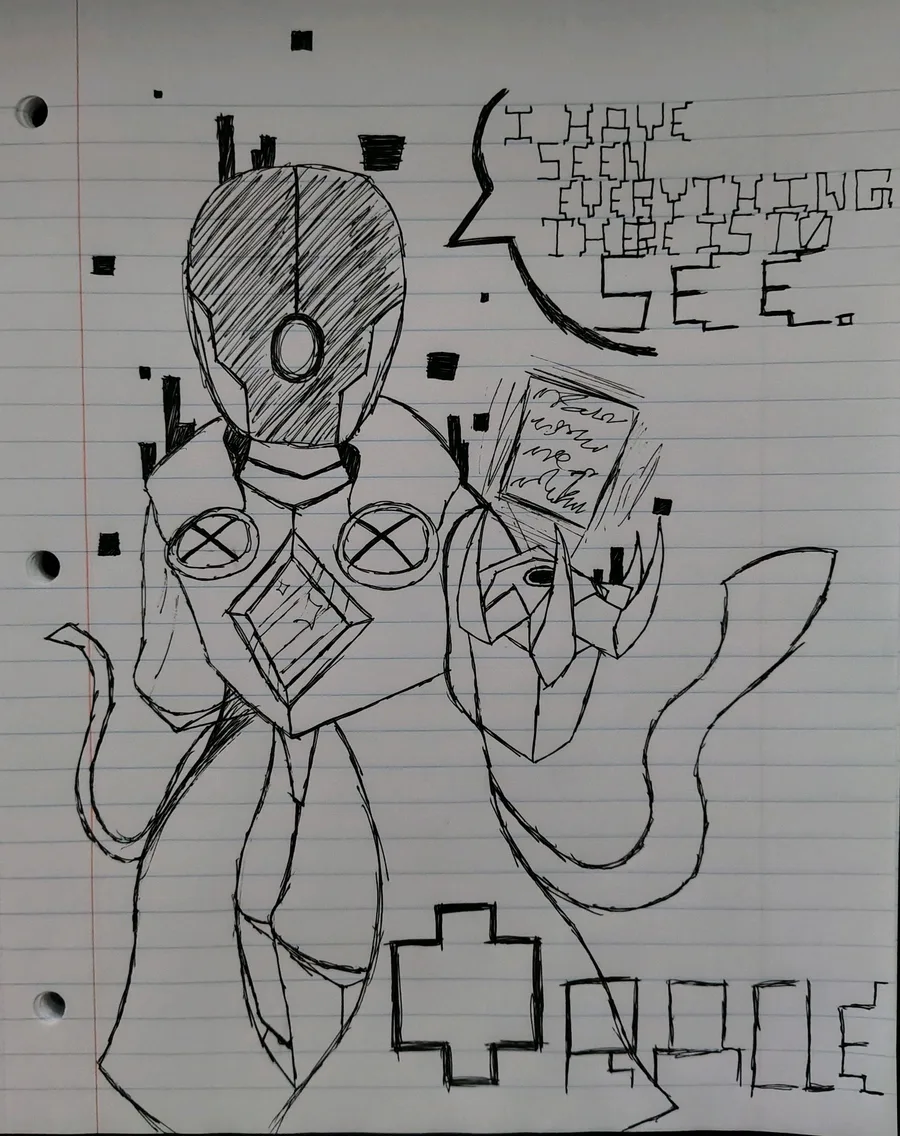 I HAVE
SEEN
EVERYTHING
THERE IS TO
SEE.
ORACLE